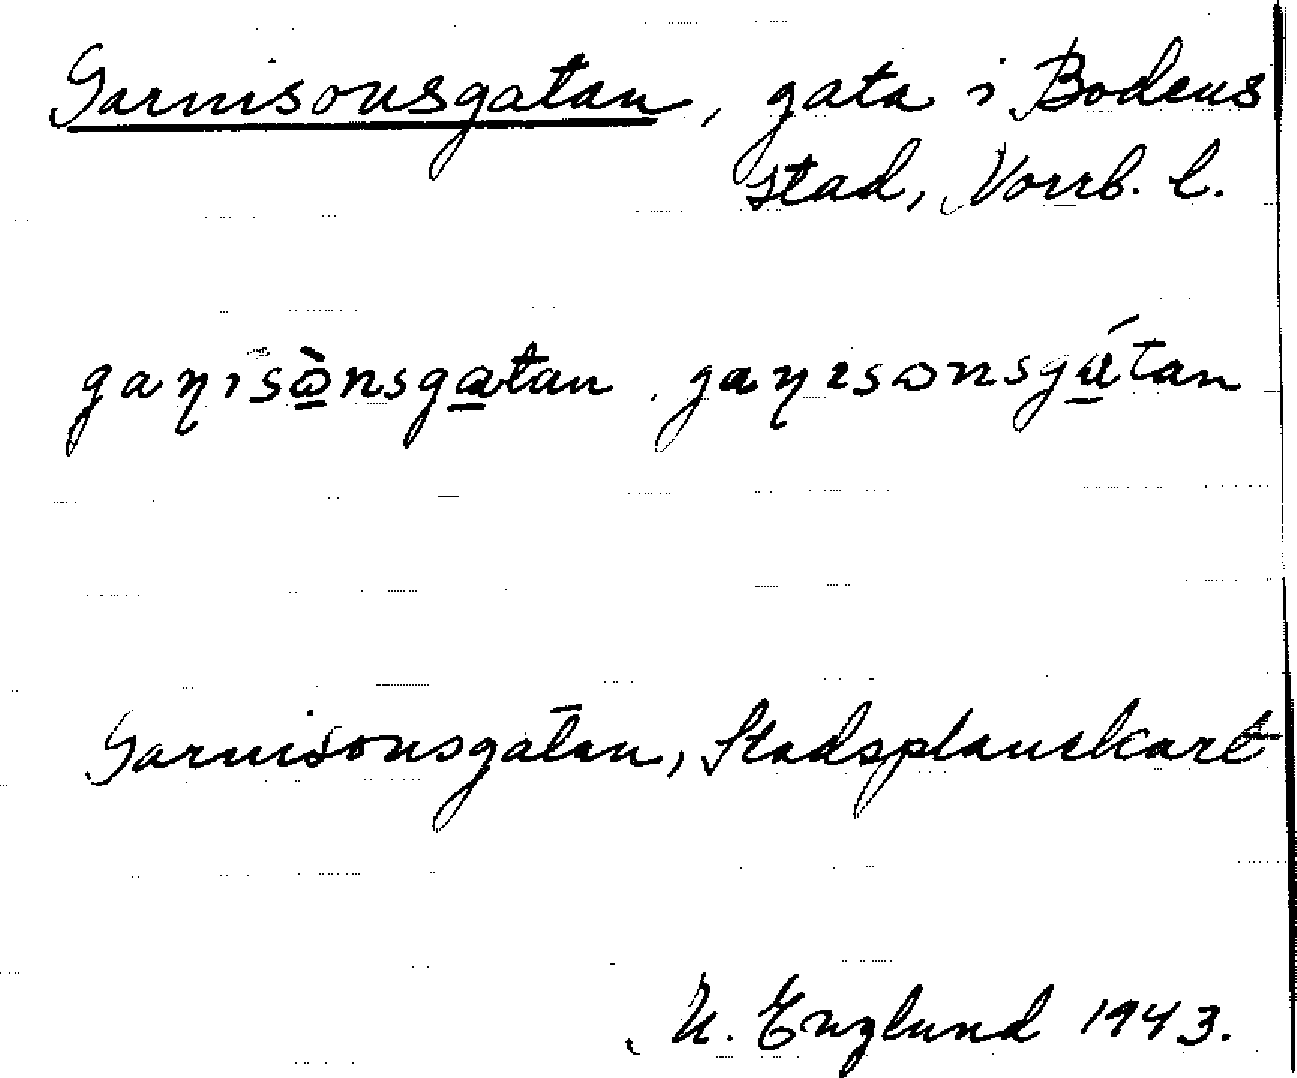 Garnisonsgatan, gata i Bodens
stad, Norrb. l.
gaɳisò̱nsga̱tan. gaɳısonsgá̱tan
Garnisonsgatan, Stadsplanekart
Englund 1943.